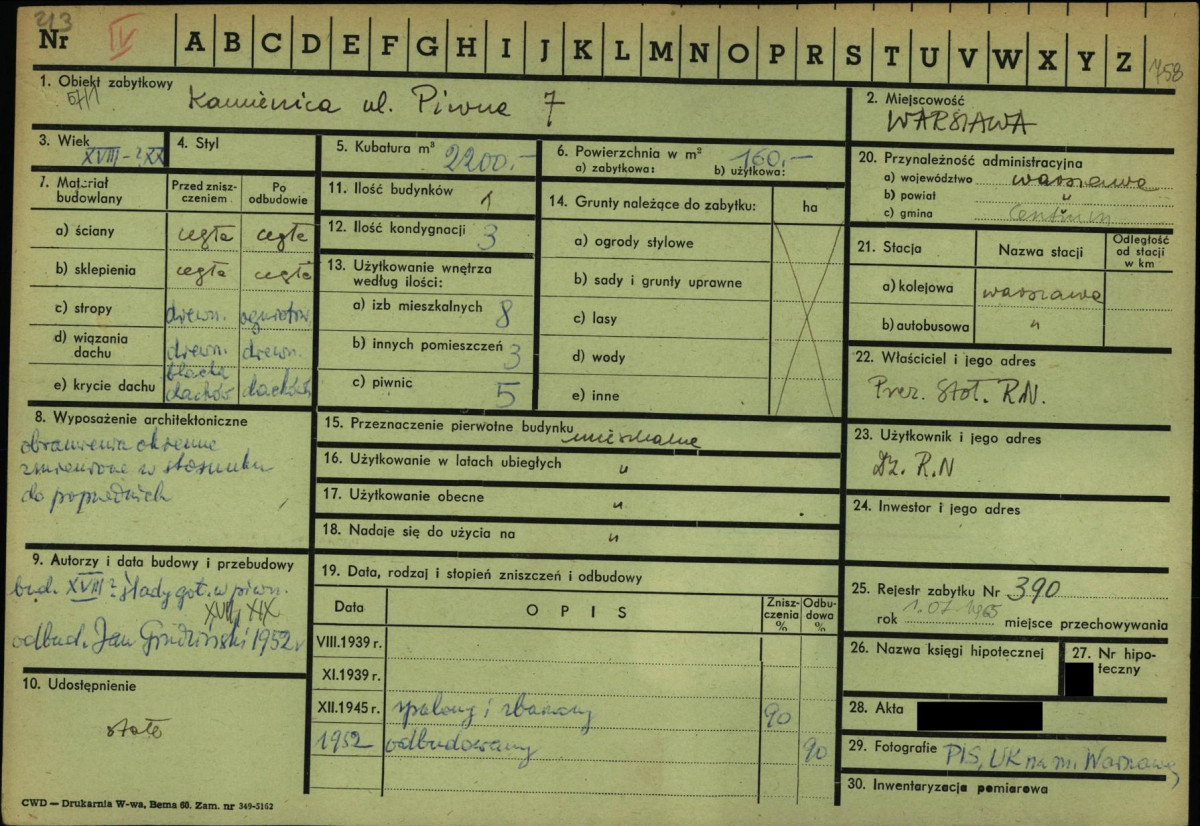 213
Nr IV A B C D E F G H I J K L M N O P R S T U V W X Y Z 758
1. Obiekt zabytkowy
57/1 Kamienica ul. Piwna 7
2. Miejscowość
WARSZAWA
3. Wiek
XVIII-?XX
4. Styl
5. Kubatura m³ 2200.-
6. Powierzchnia w m²
a) zabytkowa: b) użytkowa: 160.-
7. Materiał budowlany
Przed zniszczeniem
Po odbudowie
a) ściany cegła cegła
b) sklepienia cegła cegła
c) stropy drewn. ogniotrw
d) wiązania dachu drewn. drewn.
e) krycie dachu blacha dachów dachów
8. Wyposażenie architektoniczne
obramienia okienne
zmienione w stosunku
do poprzednich
9. Autorzy i data budowy i przebudowy
bud. XVIII? ślady got. w piwn.
XVIII, XIX
odbud. Jan Grudziński 1952 r
10. Udostępnienie
stałe
11. Ilość budynków 1
12. Ilość kondygnacji 3
13. Użytkowanie wnętrza według ilości:
a) izb mieszkalnych 8
b) innych pomieszczeń 3
c) piwnic 5
14. Grunty należące do zabytku: ha
a) ogrody stylowe
b) sady i grunty uprawne
c) lasy
d) wody
e) inne
15. Przeznaczenie pierwotne budynku mieszkalne
16. Użytkowanie w latach ubiegłych "
17. Użytkowanie obecne "
18. Nadaje się do użycia na "
19. Data, rodzaj i stopień zniszczeń i odbudowy
Data OPIS Zniszczenia % Odbudowa %
VIII.1939 r.
XI.1939 r.
XII.1945 r. spalony i zburzony 90
1952 odbudowany 90
20. Przynależność administracyjna
a) województwo warszawa
b) powiat "
c) gmina Centrum
21. Stacja Nazwa stacji Odległość od stacji w km
a) kolejowa warszawa
b) autobusowa "
22. Właściciel i jego adres
Prez. Stoł. R.N.
23. Użytkownik i jego adres
Dz. R.N
24. Inwestor i jego adres
25. Rejestr zabytku Nr 390
rok 1.07.1965 miejsce przechowywania
26. Nazwa księgi hipotecznej
27. Nr hipoteczny
28. Akta
29. Fotografie PIS, UK na m. Warszawę
30. Inwentaryzacja pomiarowa
CWD — Drukarnia W-wa, Bema 60. Zam. nr 349-5162